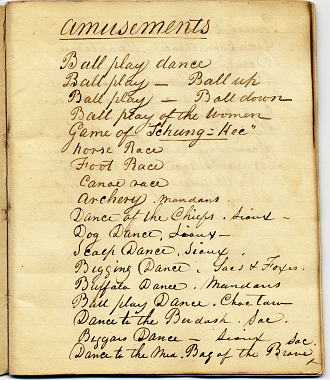 amusements
Ball play dance
Ball play — Ball up
Ball play — Ball down
Ball play of the Women
Game of "Tchung-kee"
horse Race
Foot Race
Canoe race
Archery. Mandans.
Dance of the Chiefs. Sioux —
Dog Dance, Sioux —
Scalp Dance, Sioux.
Begging Dance. Sacs & Foxes.
Buffalo Dance. Mandans
Ball play Dance. Choctaw
Dance to the Berdash. Sac.
Beggars Dance — Sioux
Dance to the Med. Bag of the Brave Sac.